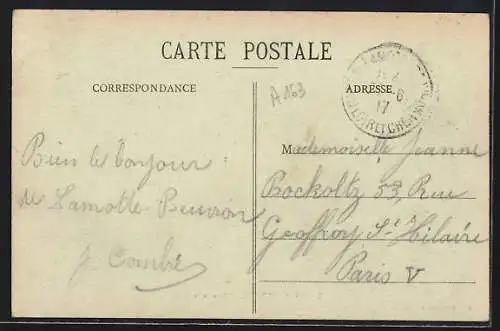 CARTE POSTALE
CORRESPONDANCE
A163
ADRESSE
6
17
LOIR ET CHER
Bien le bonjour
de Lamotte-Beuvron
J. Combre
Mademoiselle Jeanne
Bockoltz 53, Rue
Geoffroy St Hilaire
Paris V